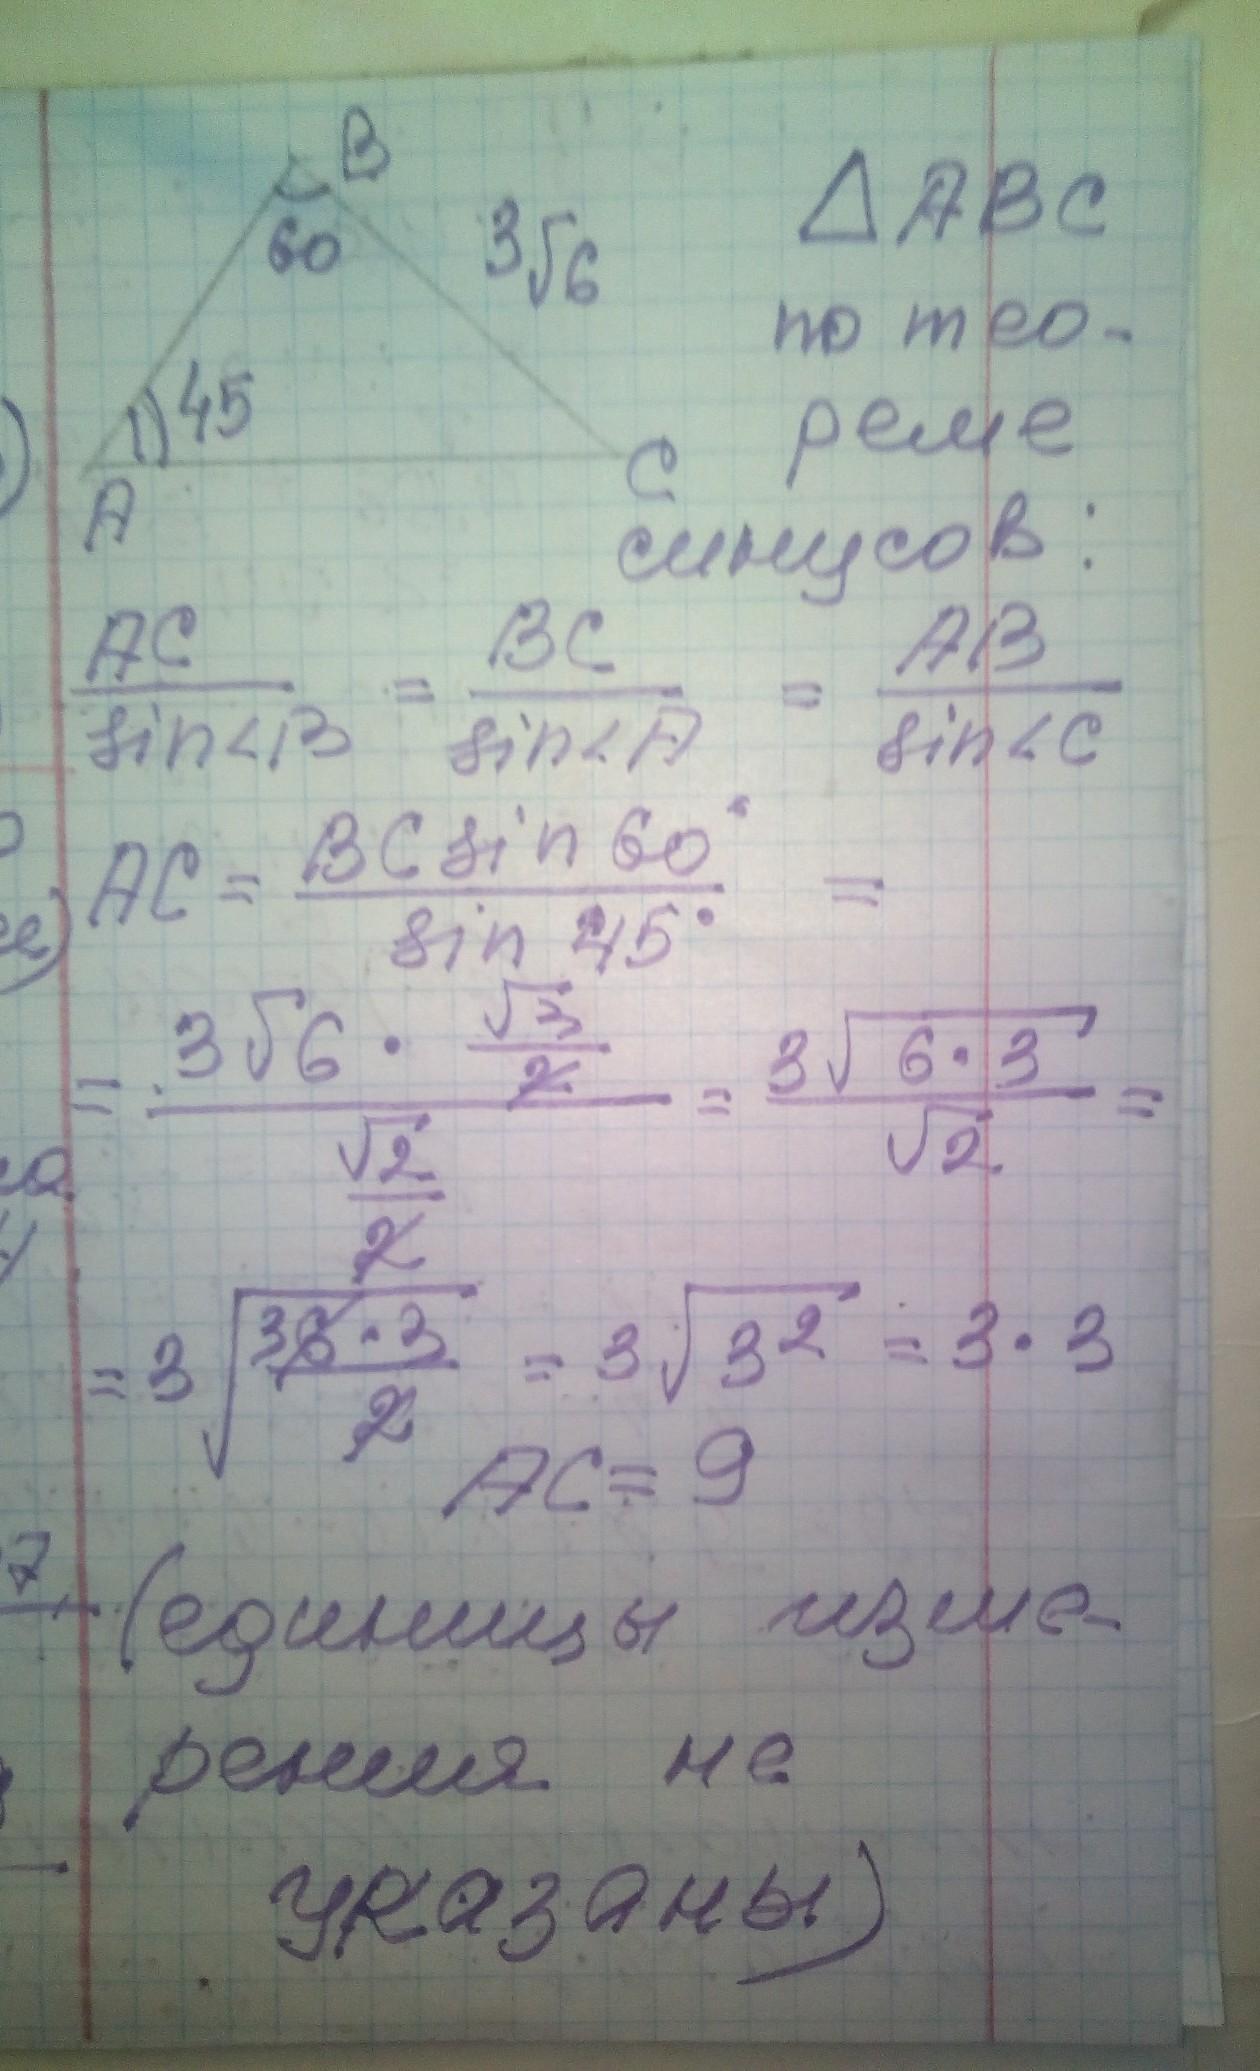 B
60
3√6
△ABC
по тео-
45
реме
A
C
синусов:
AC/sin<B = BC/sin<A = AB/sin<C
AC = BC sin 60°/sin 45° =
= (3√6 · √3/2)/(√2/2) = 3√(6·3)/√2 =
= 3√(36·3/2) = 3√(3²) = 3·3
AC = 9
7
(единицы изме-
рения не
указаны)